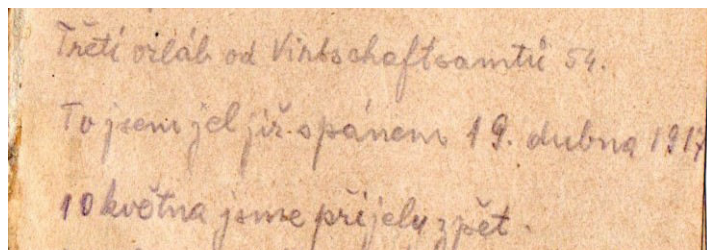 Třetí orláb od Virtschaftsamtů 54.
To jsem jel již s pánem 19. dubna 1917
10 května jsme přijely zpět.